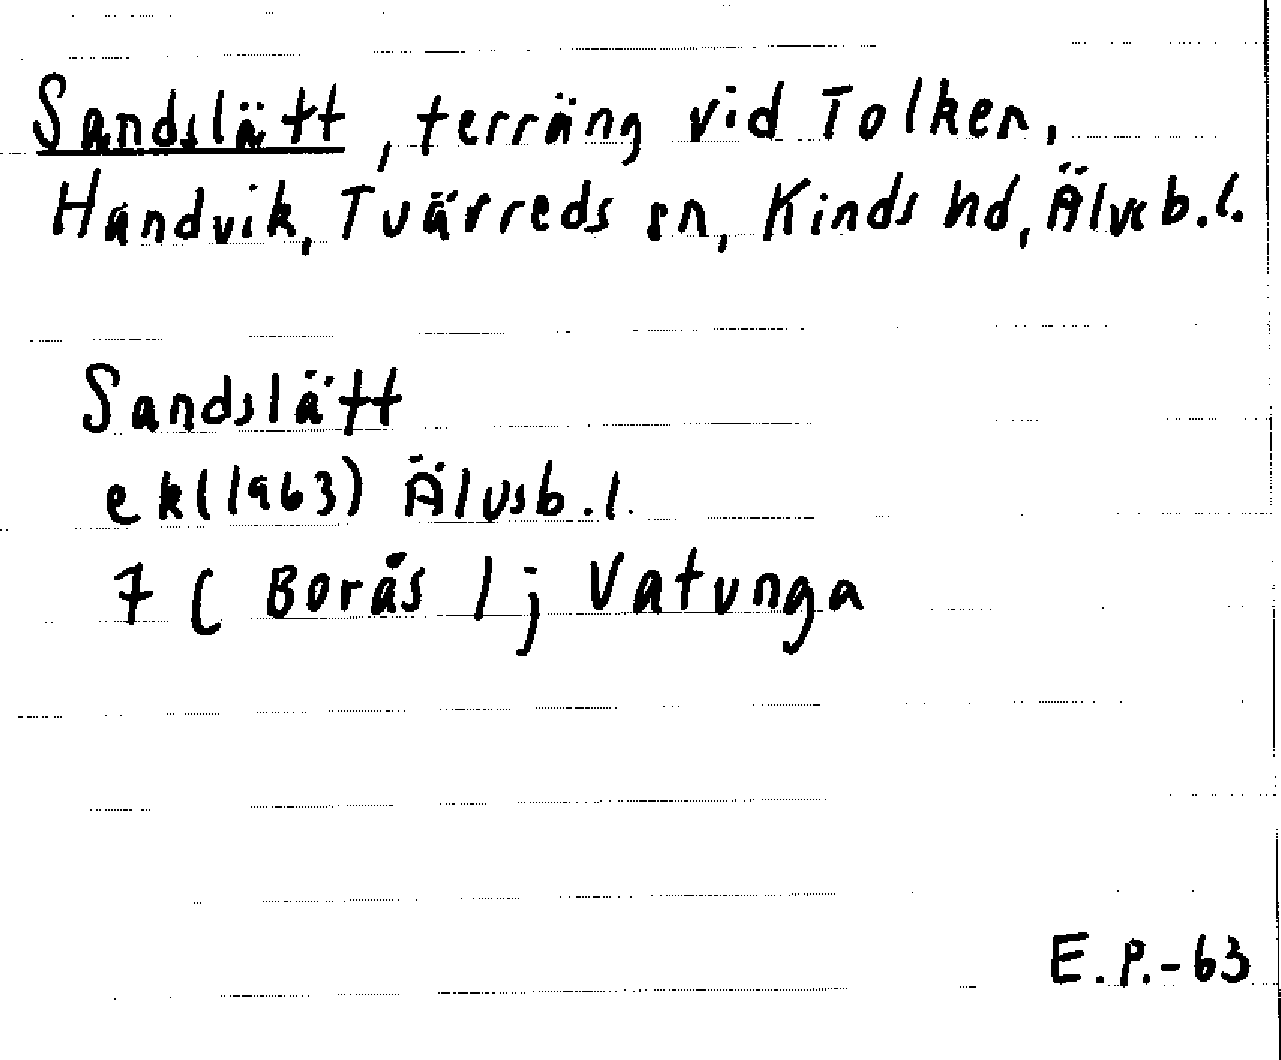 Sandslätt, terräng vid Tolken,
Handvik, Tvärreds sn, Kinds hd, Älvsb.l.
Sandslätt
ek(1963) Älvsb.l.
7 C Borås 1 j Vatunga
E.P.-63